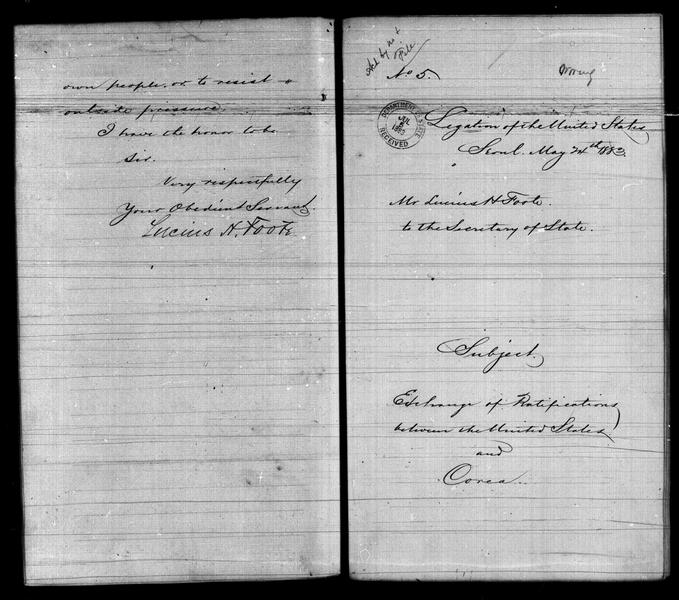 own people, or to resist
outside pressure.
I have the honor to be
Sir.
Very respectfully
Your Obedient Servant
Lucius H. Foote
Ack by no 4
File
No 5.
DEPARTMENT OF STATE
JUL
1883
RECEIVED
Legation of the United States
Seoul. May 24th 1883.
Mr Lucius H Foote.
to the Secretary of State.
Subject
Exchange of Ratifications
between the United States
and
Corea.